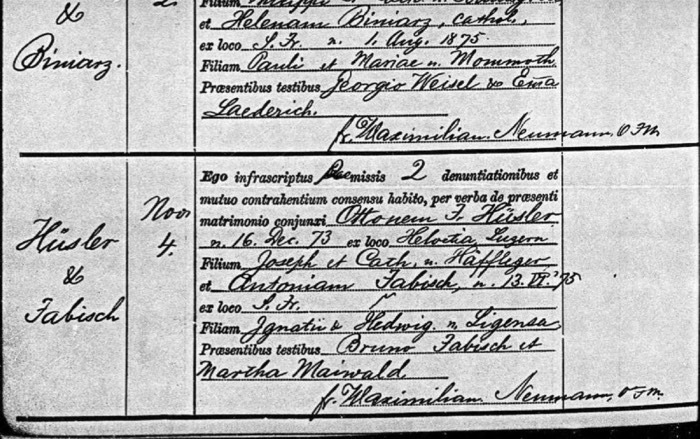 &
Biniarz.
et Helenam Biniarz, cathol.,
ex loco S. Fr. n. 1. Aug. 1875.
Filiam Pauli et Mariae n. Mommoth
Præsentibus testibus Georgio Weisel & Emma
Laederich.
fr. Maximilian. Neumann, O.F.M.
Hüsler
&
Fabisch
Novr
4.
Ego infrascriptus Præmissis 2 denuntiationibus et
mutuo contrahentium consensu habito, per verba de præsenti
matrimonio conjunxi Ottonem J. Hüsler
n. 16. Dec. 73 ex loco Helvetia, Luzern
Filium Joseph et Cath. n. Haffliger
et Antoniam Fabisch, n. 13. VI. '75
ex loco S. Fr.
Filiam Ignatii & Hedwig. n. Ligensa
Præsentibus testibus Bruno Fabisch et
Martha Maiwald
fr. Maximilian. Neumann, O.F.M.